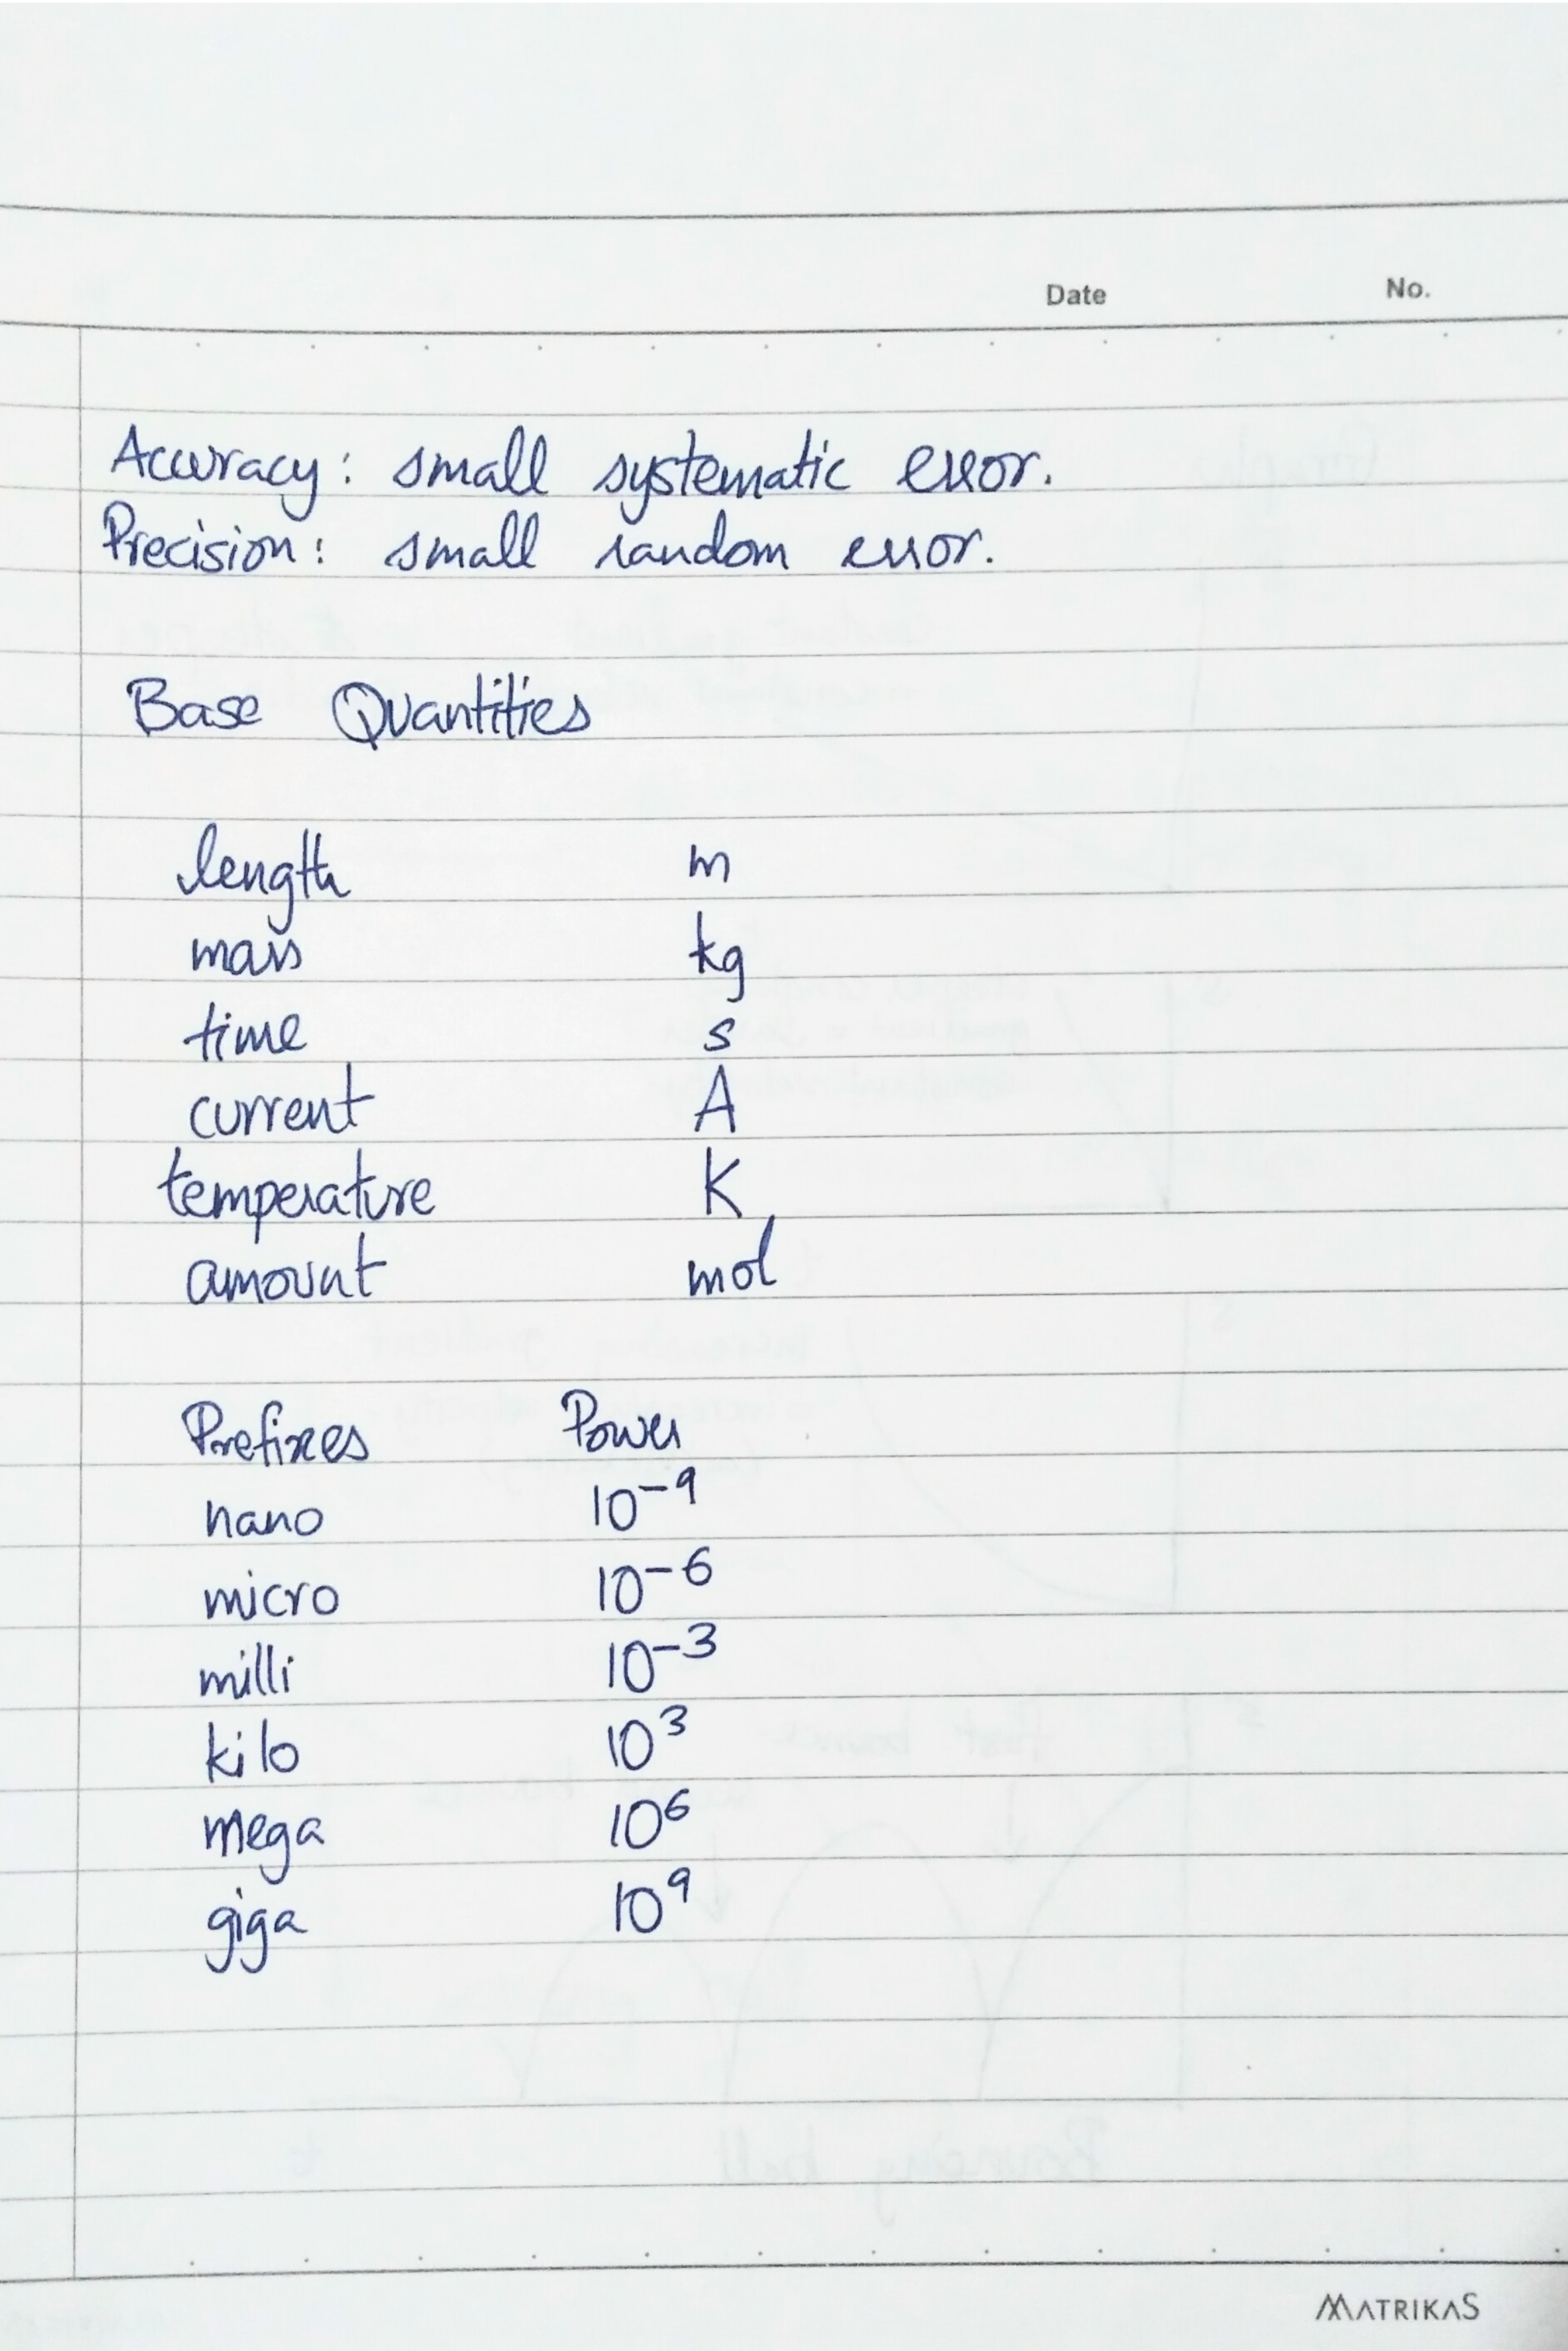 Date No.
Accuracy: small systematic error.
Precision: small random error.
Base Quantities
length m
mass kg
time s
current A
temperature K
amount mol
Prefixes Power
nano 10⁻⁹
micro 10⁻⁶
milli 10⁻³
kilo 10³
mega 10⁶
giga 10⁹
Bouncing ball
MATRIKAS